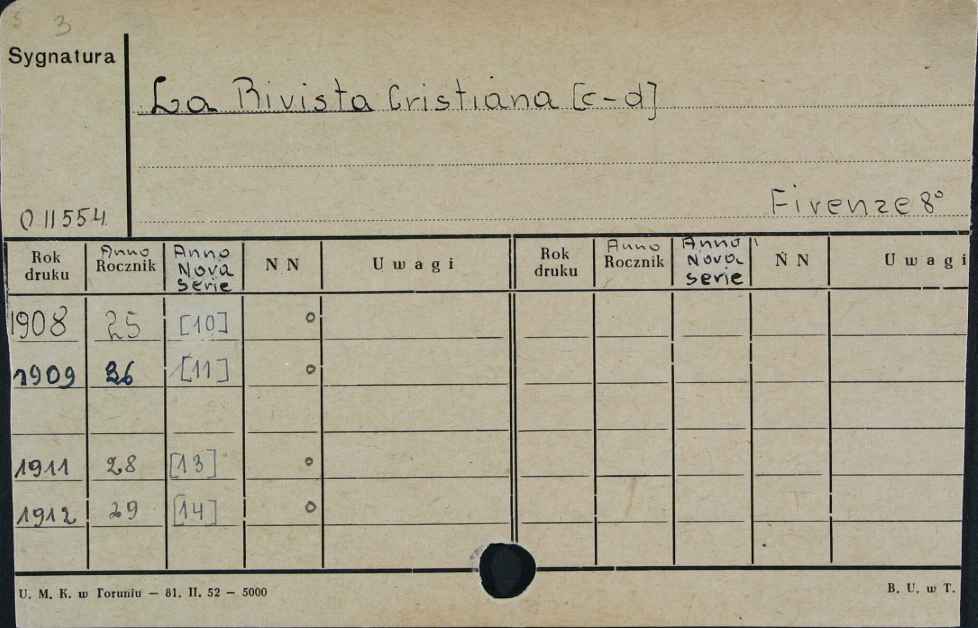 3
Sygnatura
La Rivista Cristiana [c-d]
Firenze 8°
011554
Rok druku Anno Rocznik Anno Nova serie NN Uwagi Rok druku Anno Rocznik Anno Nova serie NN Uwagi
1908 25 [10] o
1909 26 [11] o
1911 28 [13] o
1912 29 [14] o
U. M. K. w Toruniu – 81. II. 52 – 5000
B. U. w T.